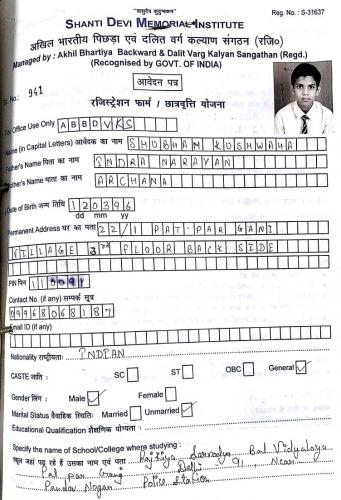 "वसुधैव कुटुम्बकम"
Reg. No. : S-31637
SHANTI DEVI MEMORIAL INSTITUTE
अखिल भारतीय पिछड़ा एवं दलित वर्ग कल्याण संगठन (रजि०)
Managed by : Akhil Bhartiya Backward & Dalit Varg Kalyan Sangathan (Regd.)
(Recognised by GOVT. OF INDIA)
आवेदन पत्र
Sr. No.: 941
रजिस्ट्रेशन फार्म / छात्रवृत्ति योजना
For Office Use Only ABBDVKS
Name (in Capital Letters) आवेदक का नाम SHUBHAM KUSHWAHA
Father's Name पिता का नाम INDRA NARAYAN
Mother's Name माता का नाम ARCHANA
Date of Birth जन्म तिथि 120396
dd mm yy
Permanent Address घर का पता 22/1 PAT-PAR GANJ
VILLAGE 3rd FLOOR BACK SIDE
PIN पिन 110091
Contact No. (if any) सम्पर्क सूत्र
09968068187
Email ID (if any)
Nationality राष्ट्रीयता: INDIAN
CASTE जाति : SC ST OBC General ✓
Gender लिंग : Male ✓ Female
Marital Status वैवाहिक स्थिति: Married Unmarried ✓
Educational Qualification शैक्षणिक योग्यता :
Specify the name of School/College where studying :
स्कूल जहां पढ़ रहे हैं उसका नाम एवं पता Rajkiya Sarvodya Bal Vidyalaya
Pat par Ganj Delhi 91 Near
Pandav Nagar Police Station